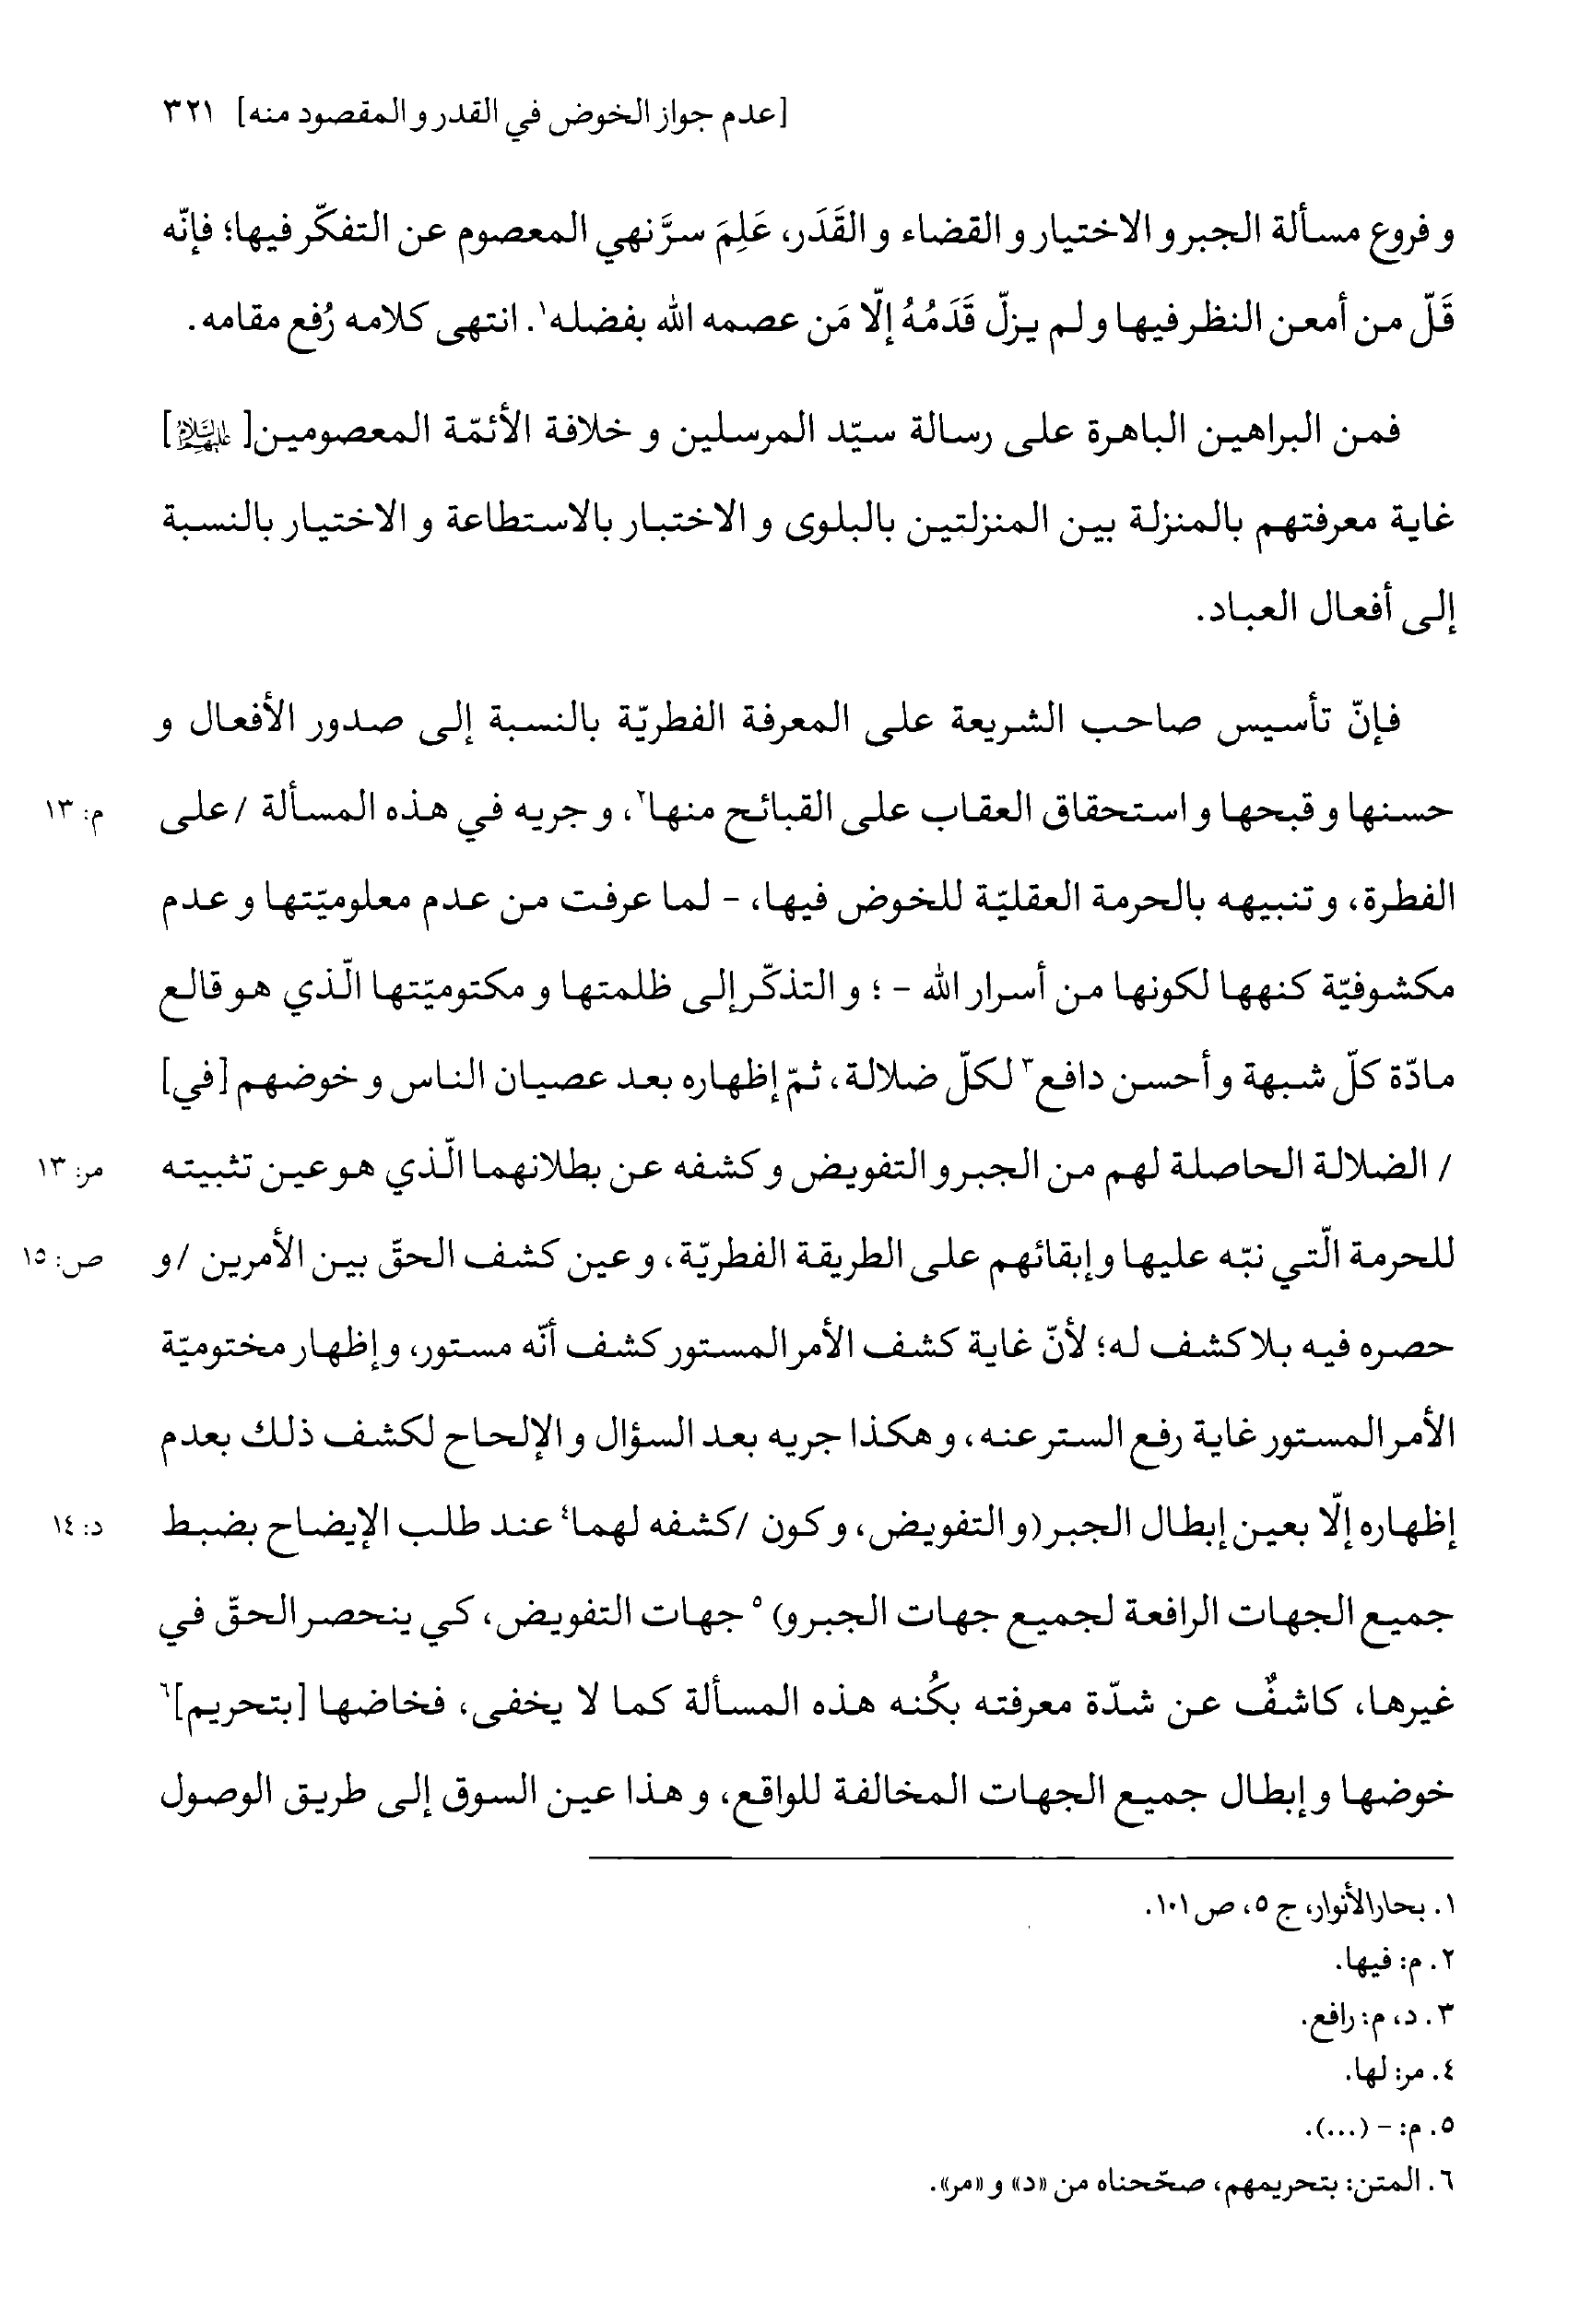 [عدم جواز الخوض في القدر و المقصود منه] ٣٢١
و فروع مسألة الجبر و الاختيار و القضاء و القَدَر، عَلِمَ سرَّ نهي المعصوم عن التفكّر فيها؛ فإنّه
قَلّ من أمعن النظر فيها و لم يزلّ قَدَمُهُ إلّا مَن عصمه الله بفضله١. انتهى كلامه رُفع مقامه.
فمن البراهين الباهرة على رسالة سيّد المرسلين و خلافة الأئمّة المعصومين[عليهم السلام]
غاية معرفتهم بالمنزلة بين المنزلتين بالبلوى و الاختبار بالاستطاعة و الاختيار بالنسبة
إلى أفعال العباد.
فإنّ تأسيس صاحب الشريعة على المعرفة الفطريّة بالنسبة إلى صدور الأفعال و
حسنها و قبحها و استحقاق العقاب على القبائح منها٢، و جريه في هذه المسألة /على م: ١٣
الفطرة، و تنبيهه بالحرمة العقليّة للخوض فيها، - لما عرفت من عدم معلوميّتها و عدم
مكشوفيّة كنهها لكونها من أسرار الله - ؛ و التذكّر إلى ظلمتها و مكتوميّتها الّذي هو قالع
مادّة كلّ شبهة و أحسن دافع٣ لكلّ ضلالة، ثمّ إظهاره بعد عصيان الناس و خوضهم [في]
/ الضلالة الحاصلة لهم من الجبر و التفويض و كشفه عن بطلانهما الّذي هو عين تثبيته مر: ١٣
للحرمة الّتي نبّه عليها و إبقائهم على الطريقة الفطريّة، و عين كشف الحقّ بين الأمرين /و ص: ١٥
حصره فيه بلا كشف له؛ لأنّ غاية كشف الأمر المستور كشف أنّه مستور، و إظهار مختوميّة
الأمر المستور غاية رفع الستر عنه، و هكذا جريه بعد السؤال و الإلحاح لكشف ذلك بعدم
إظهاره إلّا بعين إبطال الجبر (و التفويض، و كون /كشفه لهما٤ عند طلب الإيضاح بضبط د: ١٤
جميع الجهات الرافعة لجميع جهات الجبر و)٥ جهات التفويض، كي ينحصر الحقّ في
غيرها، كاشفٌ عن شدّة معرفته بكُنه هذه المسألة كما لا يخفى، فخاضها [بتحريم]٦
خوضها و إبطال جميع الجهات المخالفة للواقع، و هذا عين السوق إلى طريق الوصول
١. بحار الأنوار، ج ٥، ص ١٠١.
٢. م: فيها.
٣. د، م: رافع.
٤. مر: لها.
٥. م: - (...).
٦. المتن: بتحريمهم، صحّحناه من «د» و «مر».